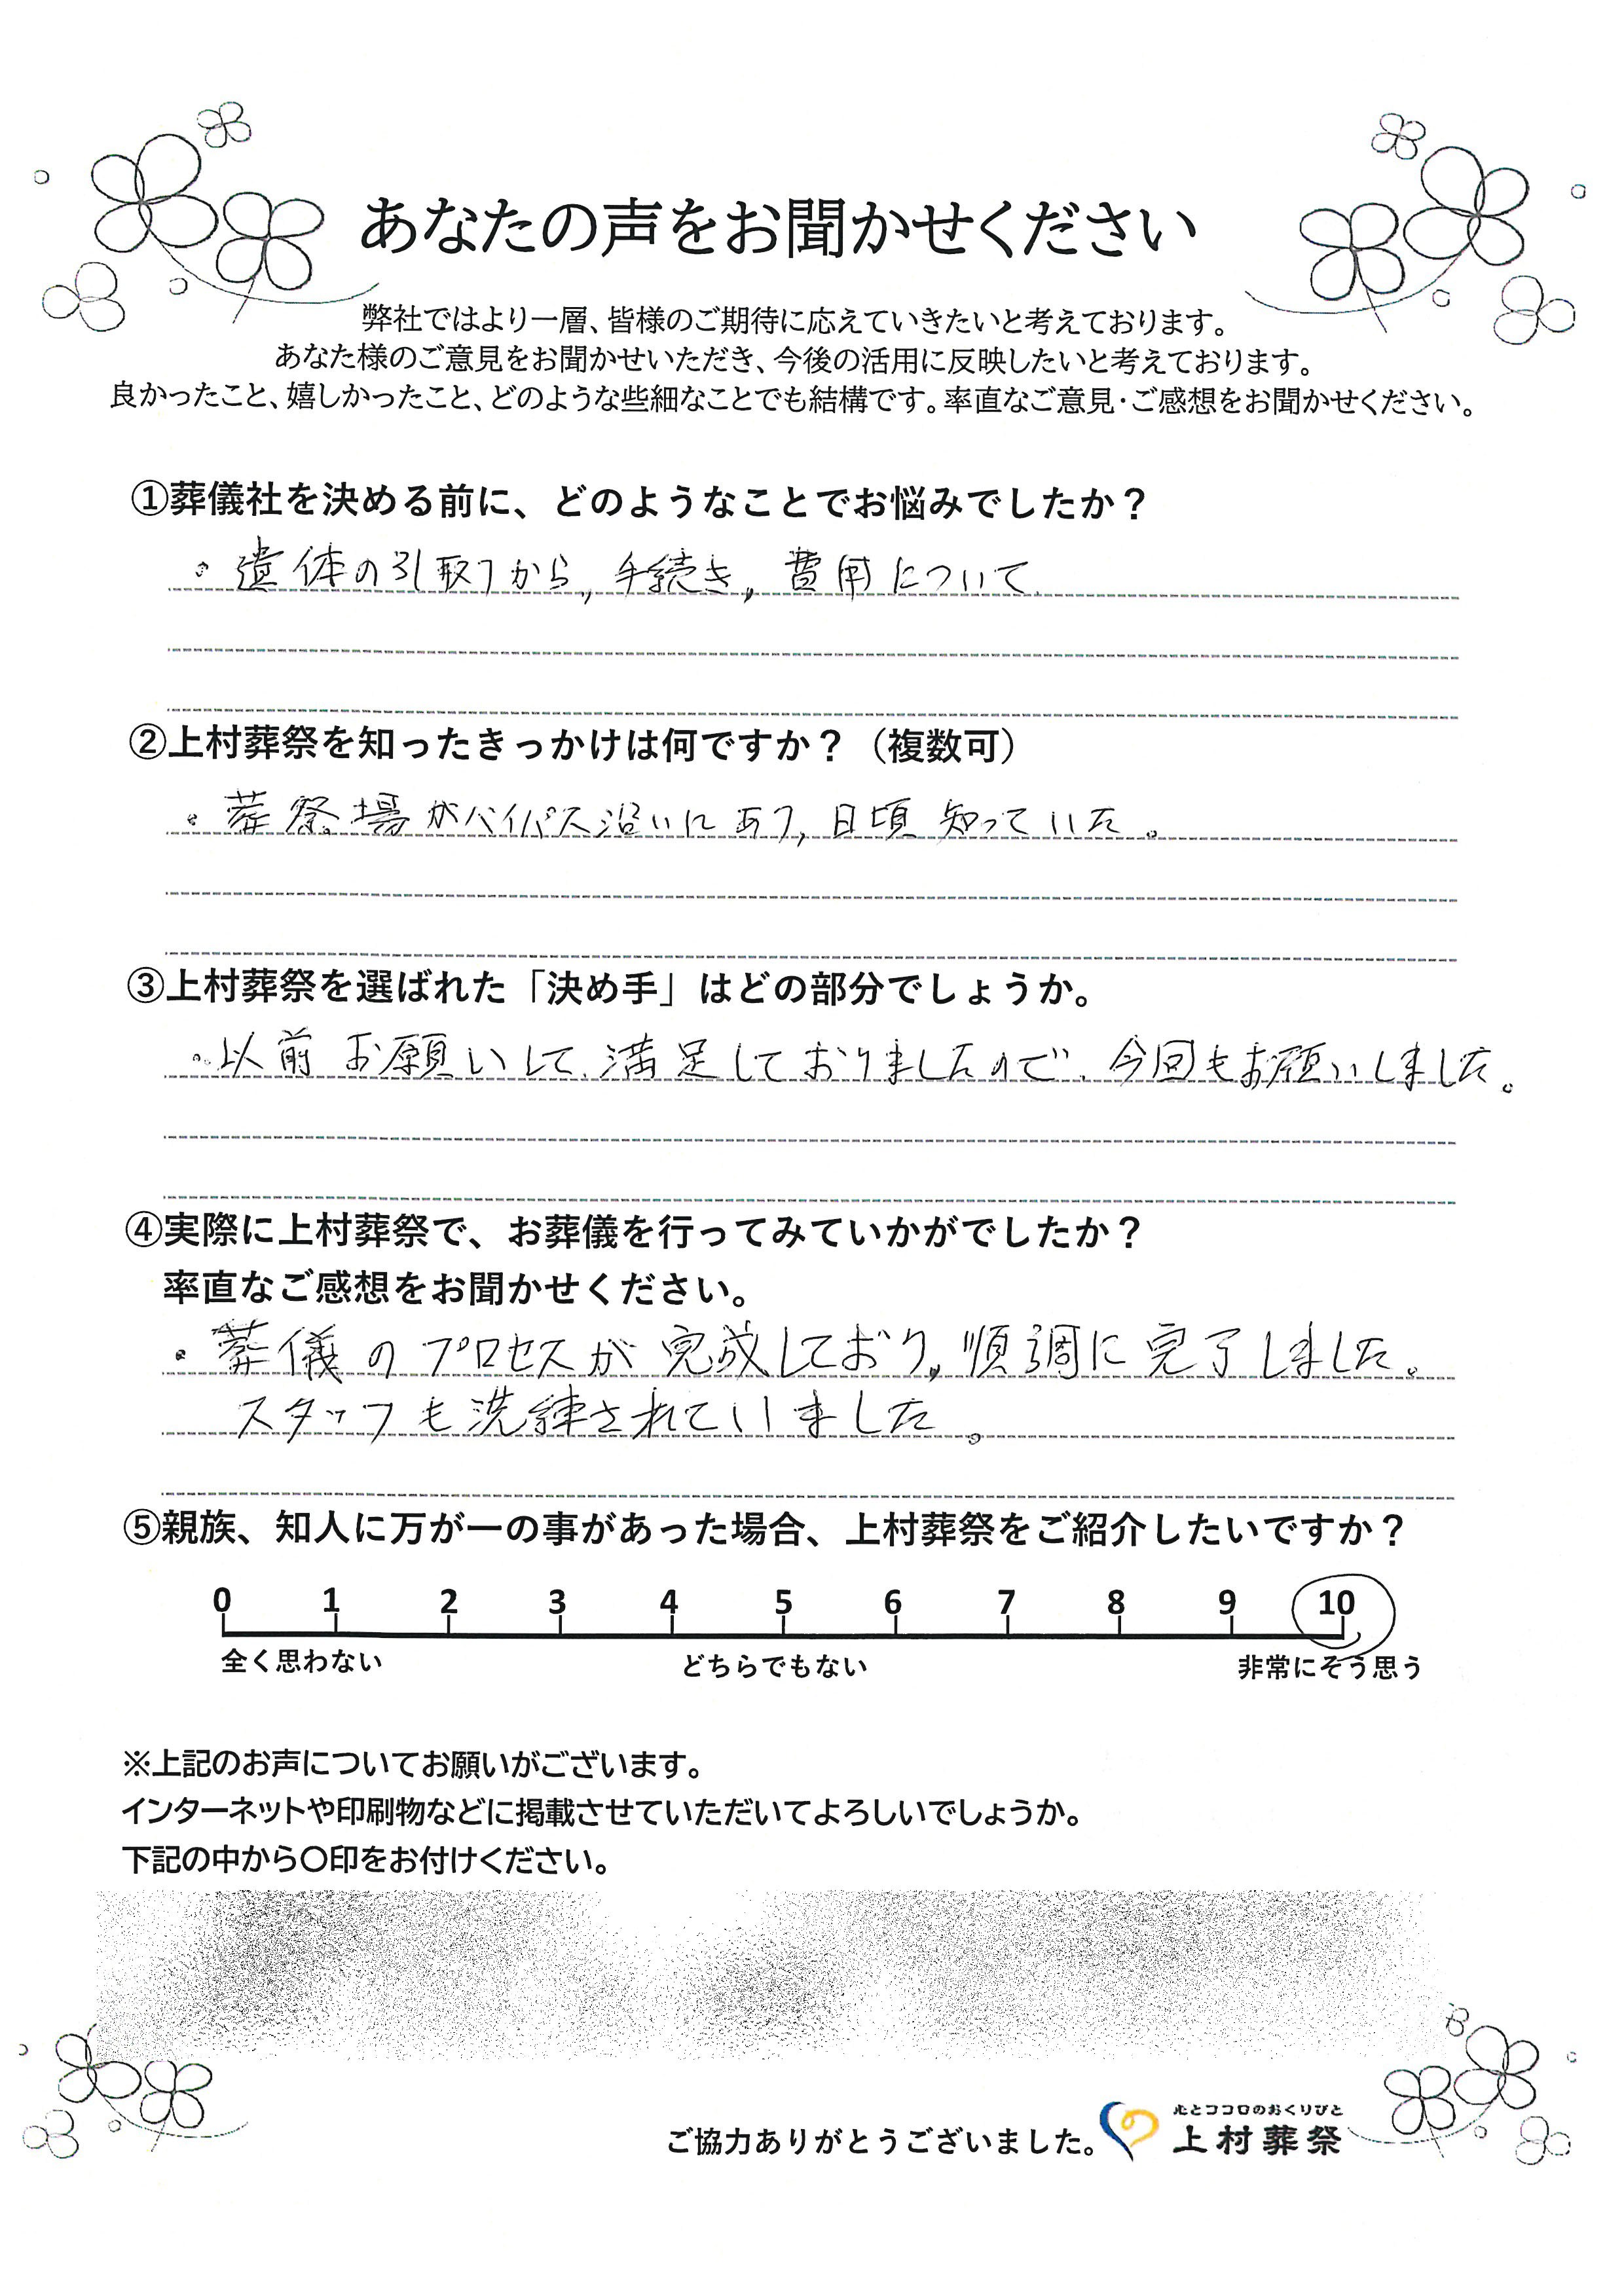 あなたの声をお聞かせください
弊社ではより一層、皆様のご期待に応えていきたいと考えております。
あなた様のご意見をお聞かせいただき、今後の活用に反映したいと考えております。
良かったこと、嬉しかったこと、どのような些細なことでも結構です。率直なご意見・ご感想をお聞かせください。
①葬儀社を決める前に、どのようなことでお悩みでしたか？
・遺体の引取りから、手続き、費用について
②上村葬祭を知ったきっかけは何ですか？（複数可）
・葬祭場がバイパス沿いにあり、日頃知っていた。
③上村葬祭を選ばれた「決め手」はどの部分でしょうか。
・以前お願いして、満足しておりましたので、今回もお願いしました。
④実際に上村葬祭で、お葬儀を行ってみていかがでしたか？
率直なご感想をお聞かせください。
・葬儀のプロセスが完成しており、順調に完了しました。
スタッフも洗練されていました。
⑤親族、知人に万が一の事があった場合、上村葬祭をご紹介したいですか？
0 1 2 3 4 5 6 7 8 9 10
全く思わない どちらでもない 非常にそう思う
※上記のお声についてお願いがございます。
インターネットや印刷物などに掲載させていただいてよろしいでしょうか。
下記の中から〇印をお付けください。
心とココロのおくりびと
ご協力ありがとうございました。 上村葬祭